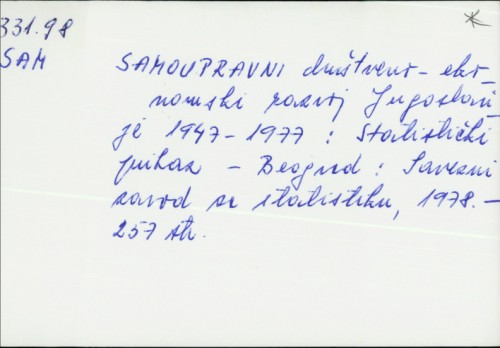 331.98
SAM
SAMOUPRAVNI društveno-eko-
nomski razvoj Jugoslavi-
je 1947-1977 : Statistički
prikaz - Beograd : Savezni
zavod za statistiku, 1978.-
257 str.